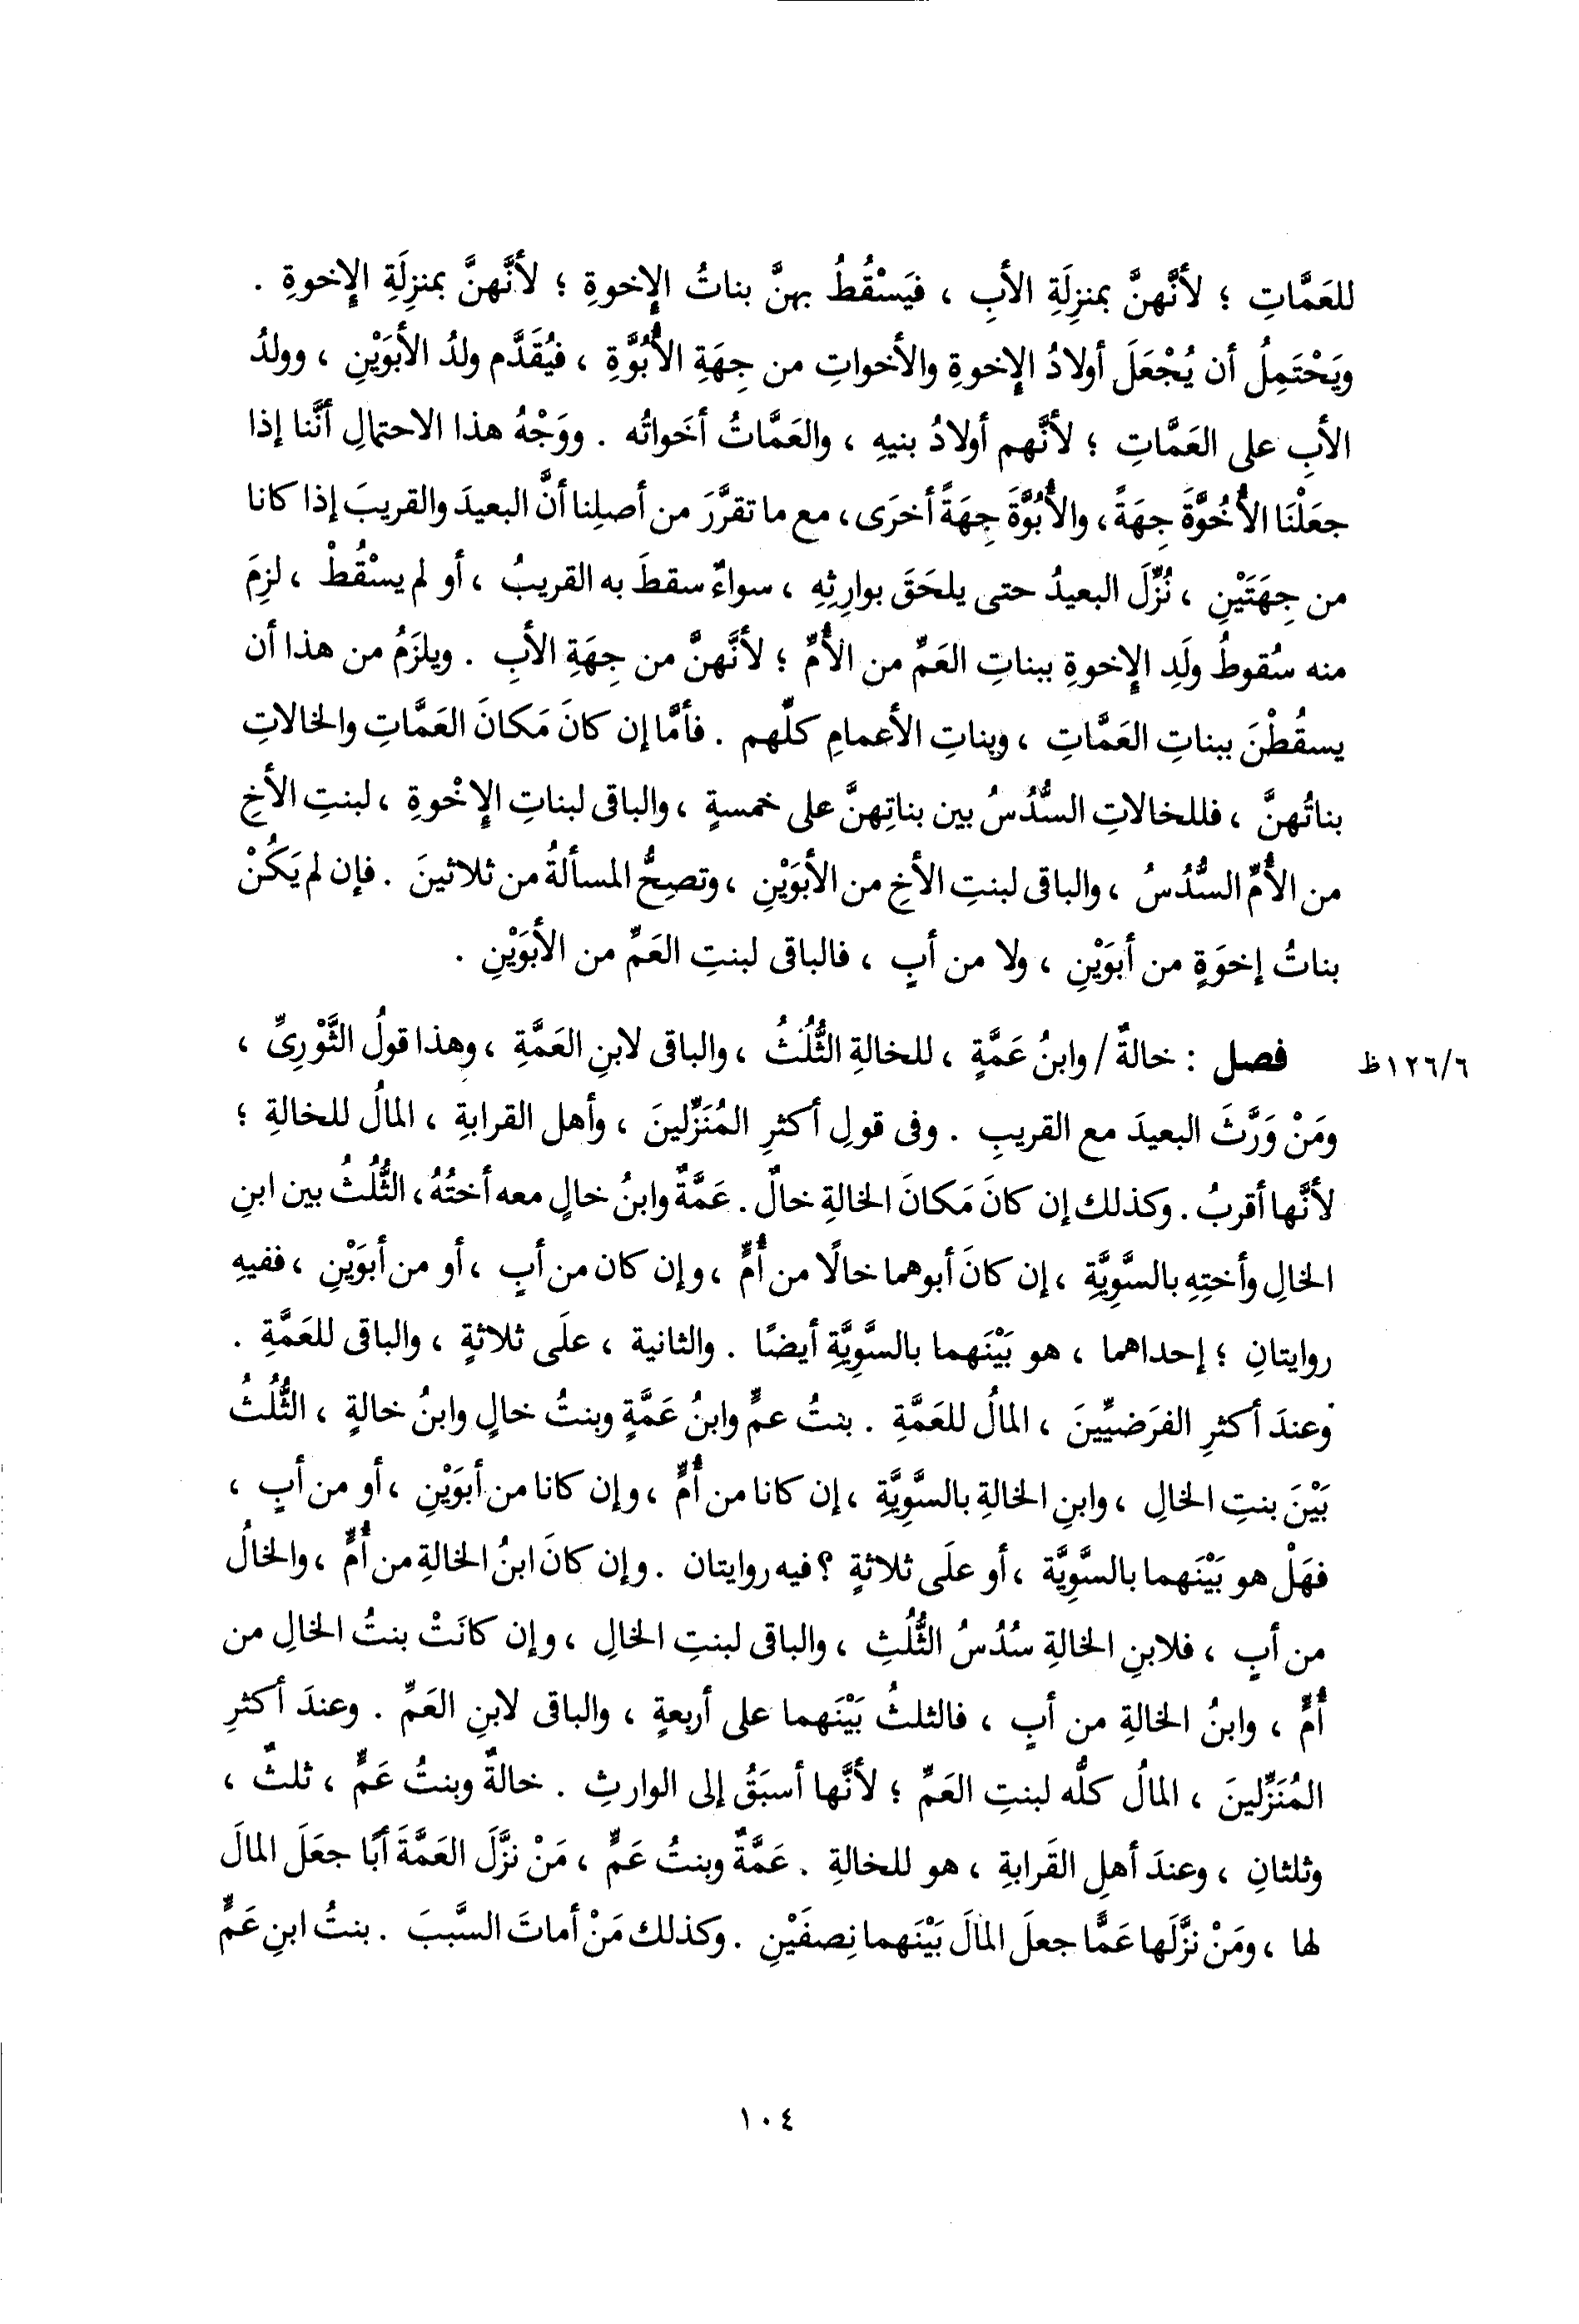 للعَمَّاتِ ؛ لأنَّهنَّ بمنزِلَةِ الأبِ ، فيَسْقُطُ بهنَّ بناتُ الإِخوةِ ؛ لأنَّهنَّ بمنزِلَةِ الإِخوةِ .
ويَحْتَمِلُ أن يُجْعَلَ أولادُ الإِخوةِ والأخواتِ من جِهَةِ الأُبُوَّةِ ، فيُقَدَّم ولدُ الأبَوَيْنِ ، وولدُ
الأبِ على العَمَّاتِ ؛ لأنَّهم أولادُ بنيهِ ، والعَمَّاتُ أخَواتُه . ووَجْهُ هذا الاحتمالِ أنَّنا إذا
جعَلْنَا الأُخُوَّةَ جِهَةً ، والأُبُوَّةَ جِهَةً أخرَى ، مع ما تقرَّرَ من أصلِنا أنَّ البعيدَ والقريبَ إذا كانا
من جِهَتَيْنِ ، نُزِّلَ البعيدُ حتى يلحَقَ بوارِثِهِ ، سواءٌ سقطَ به القريبُ ، أو لم يسْقُطْ ، لزِمَ
منه سُقوطُ ولَدِ الإِخوةِ ببناتِ العَمِّ من الأُمِّ ؛ لأنَّهنَّ من جِهَةِ الأبِ . ويلزَمُ من هذا أن
يسقُطْنَ ببناتِ العَمَّاتِ ، وبناتِ الأعمامِ كلِّهم . فأمَّا إن كانَ مَكانَ العَمَّاتِ والخالاتِ
بناتُهنَّ ، فللخالاتِ السُّدُسُ بين بناتِهنَّ على خمسةٍ ، والباقى لبناتِ الإِخْوةِ ، لبنتِ الأخِ
من الأُمِّ السُّدُسُ ، والباقى لبنتِ الأخِ من الأبَوَيْنِ ، وتصِحُّ المسألةُ من ثلاثينَ . فإن لم يَكُنْ
بناتُ إخوَةٍ من أبوَيْنِ ، ولا من أبٍ ، فالباقى لبنتِ العَمِّ من الأبَوَيْنِ .
فصل : خالةٌ / وابنُ عَمَّةٍ ، للخالةِ الثُّلُثُ ، والباقى لابنِ العَمَّةِ ، وهذا قولُ الثَّوْرِىِّ ، ١٢٦/٦ظ
ومَنْ وَرَّثَ البعيدَ مع القريبِ . وفى قولِ أكثرِ المُنَزِّلينَ ، وأهل القرابةِ ، المالُ للخالةِ ؛
لأنَّها أقربُ . وكذلك إن كانَ مَكانَ الخالةِ خالٌ . عَمَّةٌ وابنُ خالٍ معه أختُهُ ، الثُّلُثُ بين ابنِ
الخالِ وأختِهِ بالسَّوِيَّةِ ، إن كانَ أبوهما خالًا من أُمٍّ ، وإن كان من أبٍ ، أو من أبوَيْنِ ، ففيهِ
روايتانِ ؛ إحداهما ، هو بَيْنَهما بالسَّوِيَّةِ أيضًا . والثانية ، علَى ثلاثةٍ ، والباقى للعَمَّةِ .
وعندَ أكثرِ الفرَضيِّينَ ، المالُ للعَمَّةِ . بنتُ عمٍّ وابنُ عَمَّةٍ وبنتُ خالٍ وابنُ خالةٍ ، الثُّلُثُ
بَيْنَ بنتِ الخالِ ، وابنِ الخالةِ بالسَّوِيَّةِ ، إن كانا من أُمٍّ ، وإن كانا من أبوَيْنِ ، أو من أبٍ ،
فهَلْ هو بَيْنَهما بالسَّوِيَّة ، أو علَى ثلاثةٍ ؟ فيه روايتان . وإن كانَ ابنُ الخالةِ من أُمٍّ ، والخالُ
من أبٍ ، فلابنِ الخالةِ سُدُسُ الثُّلُثِ ، والباقى لبنتِ الخالِ ، وإن كانَتْ بنتُ الخالِ من
أُمٍّ ، وابنُ الخالةِ من أبٍ ، فالثلثُ بَيْنَهما على أربعةٍ ، والباقى لابنِ العَمِّ . وعندَ أكثرِ
المُنَزِّلينَ ، المالُ كلُّه لبنتِ العَمِّ ؛ لأنَّها أسبَقُ إلى الوارثِ . خالةٌ وبنتُ عَمٍّ ، ثلثٌ ،
وثلثانِ ، وعندَ أهلِ القَرابةِ ، هو للخالةِ . عَمَّةٌ وبنتُ عَمٍّ ، مَنْ نزَّلَ العَمَّةَ أبًا جعَلَ المالَ
لها ، ومَنْ نزَّلَها عَمًّا جعلَ المالَ بَيْنَهما نِصفَيْنِ . وكذلك مَنْ أماتَ السَّببَ . بنتُ ابنِ عَمٍّ
١٠٤